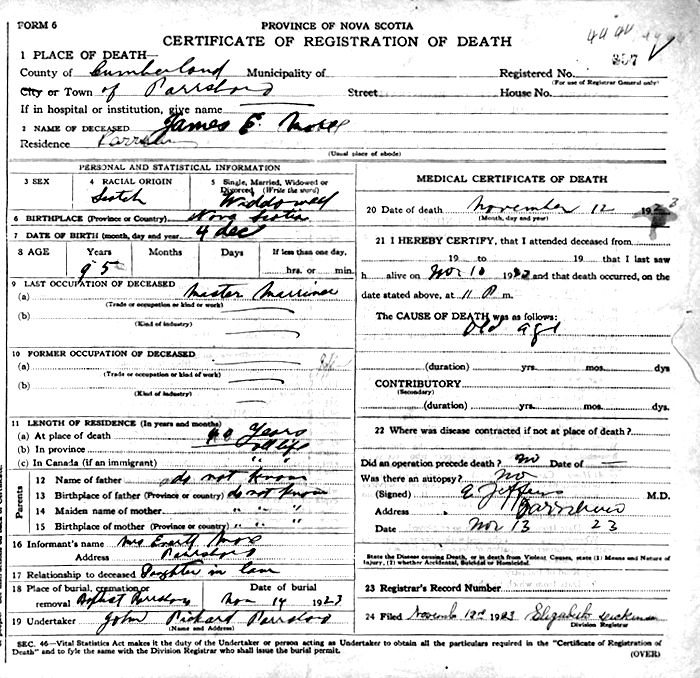 FORM 6
PROVINCE OF NOVA SCOTIA
CERTIFICATE OF REGISTRATION OF DEATH
357
1 PLACE OF DEATH—
County of Cumberland Municipality of
Registered No.
(For use of Registrar General only)
City or Town of Parrsboro Street House No.
If in hospital or institution, give name
2 NAME OF DECEASED James E.
Residence Parrsboro
(Usual place of abode)
PERSONAL AND STATISTICAL INFORMATION
3 SEX
4 RACIAL ORIGIN
Scotch
5 Single, Married, Widowed or Divorced (Write the word)
6 BIRTHPLACE (Province or Country) Nova Scotia
7 DATE OF BIRTH (month, day and year) 4 dec
8 AGE Years Months Days If less than one day,
95 hrs. or min.
9 LAST OCCUPATION OF DECEASED
(a) Master Marriner
(Trade or occupation or kind or work)
(b)
(Kind of industry)
10 FORMER OCCUPATION OF DECEASED
(a)
(Trade or occupation or kind of work)
(b)
(Kind of industry)
11 LENGTH OF RESIDENCE (In years and months)
(a) At place of death Years
(b) In province all life
(c) In Canada (if an immigrant) " "
Parents
12 Name of father do not know
13 Birthplace of father (Province or country) do not know
14 Maiden name of mother " " "
15 Birthplace of mother (Province or country) " " "
16 Informant's name Mrs Everett
Address Parrsboro
17 Relationship to deceased Daughter in law
18 Place of burial, cremation or removal Baptist Parrsboro
Date of burial Nov 14 1923
19 Undertaker John Pickard Parrsboro
(Name and Address)
MEDICAL CERTIFICATE OF DEATH
20 Date of death November 12 1923
(Month, day and year)
21 I HEREBY CERTIFY, that I attended deceased from
19 to 19 that I last saw
h alive on Nov 10 and that death occurred, on the
date stated above, at 11 P. m.
The CAUSE OF DEATH was as follows:
Old age
(duration) yrs. mos. dys
CONTRIBUTORY
(Secondary)
(duration) yrs. mos. dys.
22 Where was disease contracted if not at place of death?
Did an operation precede death? no Date of —
Was there an autopsy? no
(Signed) Jeffers M.D.
Address Parrsboro
Date Nov 13 23
State the Disease causing Death, or in death from Violent Causes, state (1) Means and Nature of Injury, (2) whether Accidental, Suicidal or Homicidal.
23 Registrar's Record Number
24 Filed 1923 Elizabeth
Division Registrar
SEC. 46—Vital Statistics Act makes it the duty of the Undertaker or person acting as Undertaker to obtain all the particulars required in the "Certificate of Registration of
Death" and to fyle the same with the Division Registrar who shall issue the burial permit.
(OVER)